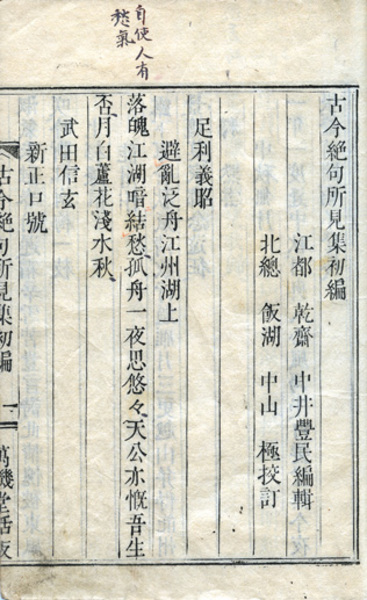 自使人有
愁氣
古今絶句所見集初編
江都 乾齋 中井豐民編輯
北總 飯湖 中山 極挍訂
足利義昭
避亂泛舟江州湖上
落魄江湖暗結愁孤舟一夜思悠々天公亦慨吾生
否月白蘆花淺水秋
武田信玄
新正口號
古今絶句所見集初編 一 萬機堂活版